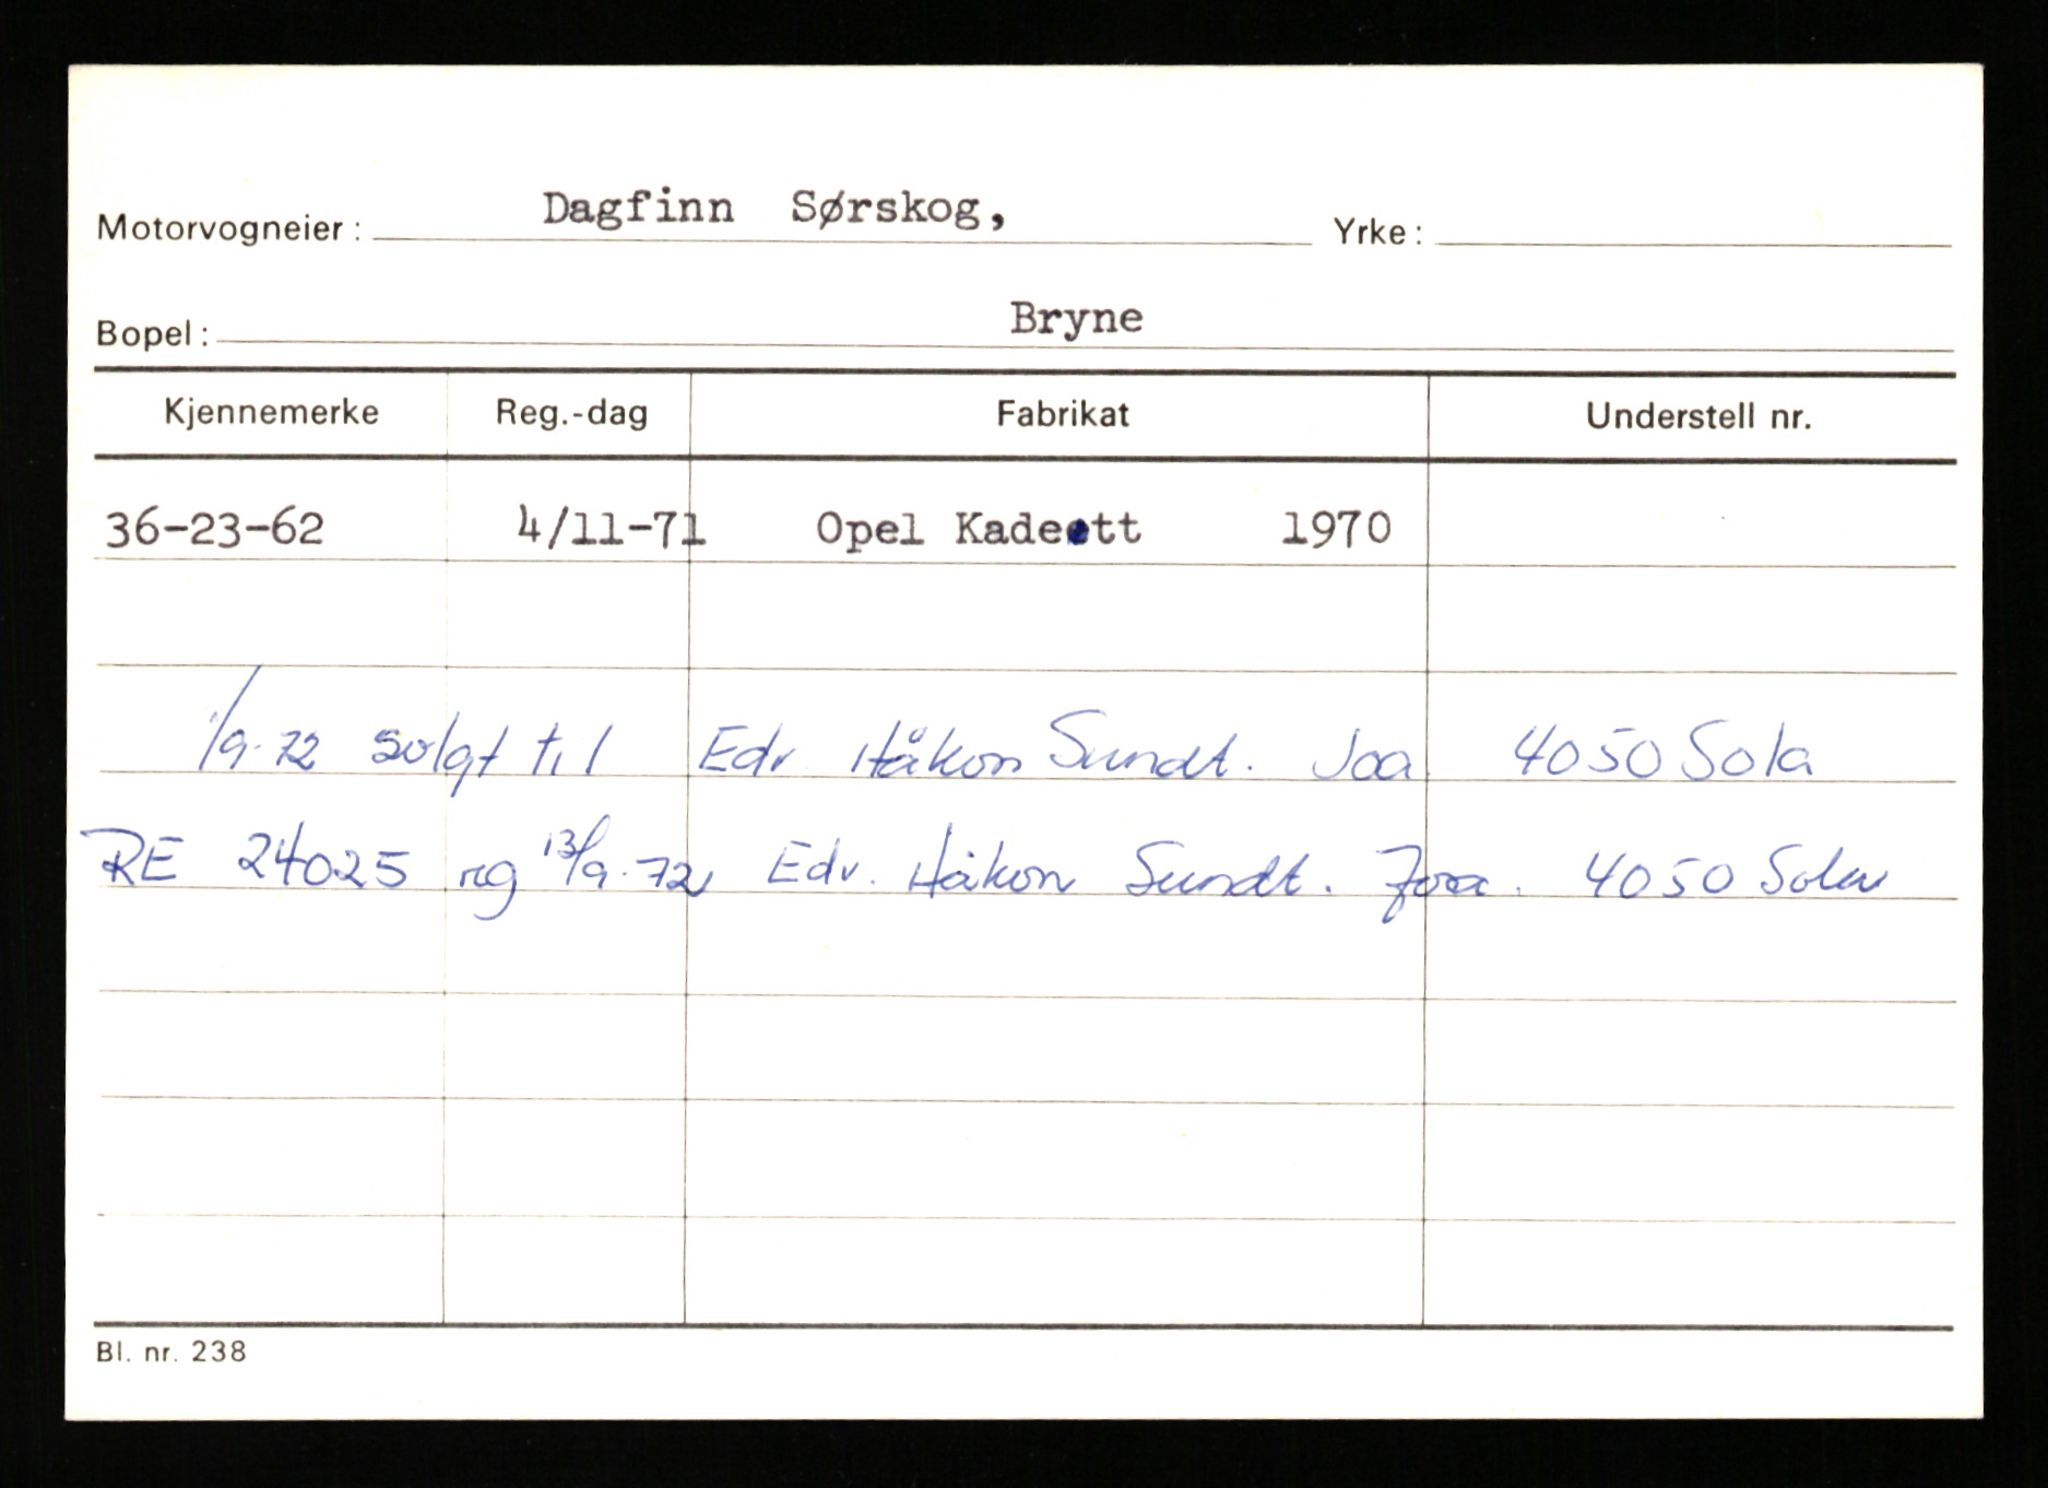 Motorvogneier: Dagfinn Sørskog, Yrke:
Bopel: Bryne
Kjennemerke Reg.-dag Fabrikat Understell nr.
36-23-62 4/11-71 Opel Kadett 1970
1/9-72 solgt til Edv Håkon Sundt. Joa 4050 Sola
RE 24025 rg 13/9-72 Edv. Håkon Sundt. Joa. 4050 Sola
Bl. nr. 238